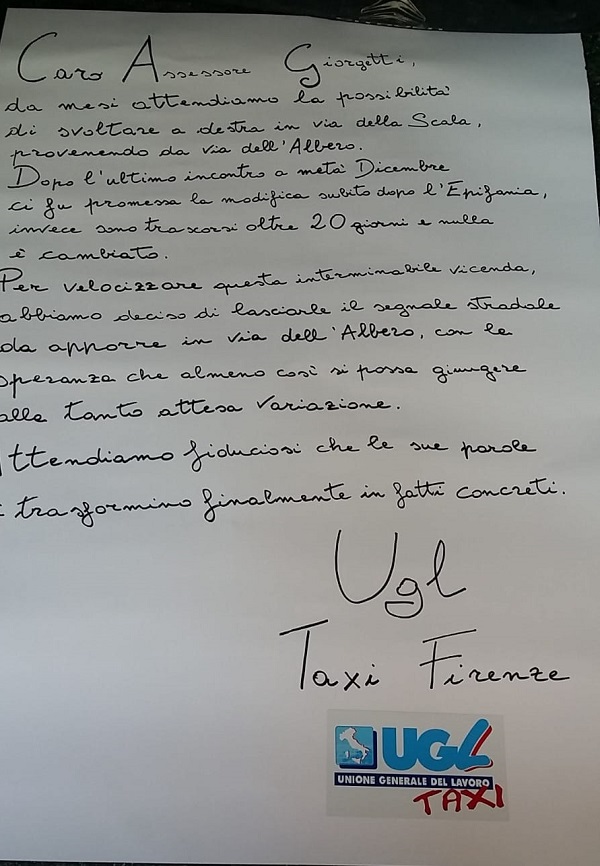 Caro Assessore Giorgetti,
da mesi attendiamo la possibilità
di svoltare a destra in via della Scala,
provenendo da via dell'Albero.
Dopo l'ultimo incontro a metà Dicembre
ci fu promessa la modifica subito dopo l'Epifania,
invece sono trascorsi oltre 20 giorni e nulla
è cambiato.
Per velocizzare questa interminabile vicenda,
abbiamo deciso di lasciarle il segnale stradale
da apporre in via dell'Albero, con la
speranza che almeno così si possa giungere
alla tanto attesa variazione.
Attendiamo fiduciosi che le sue parole
si trasformino finalmente in fatti concreti.
Ugl
Taxi Firenze
UGL
UNIONE GENERALE DEL LAVORO
TAXI